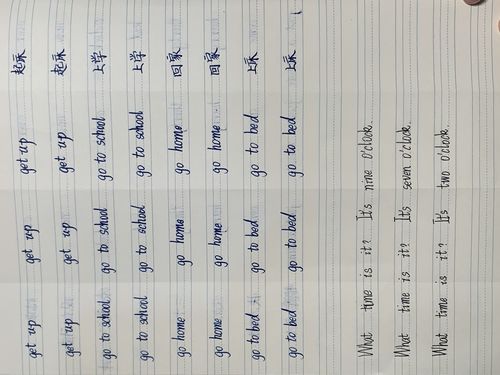 get up get up get up 起床
get up get up get up 起床
go to school go to school go to school 上学
go to school go to school go to school 上学
go home go home go home 回家
go home go home go home 回家
go to bed go to bed go to bed 上床
go to bed go to bed go to bed 上床
What time is it? It's nine o'clock.
What time is it? It's seven o'clock.
What time is it? It's two o'clock.